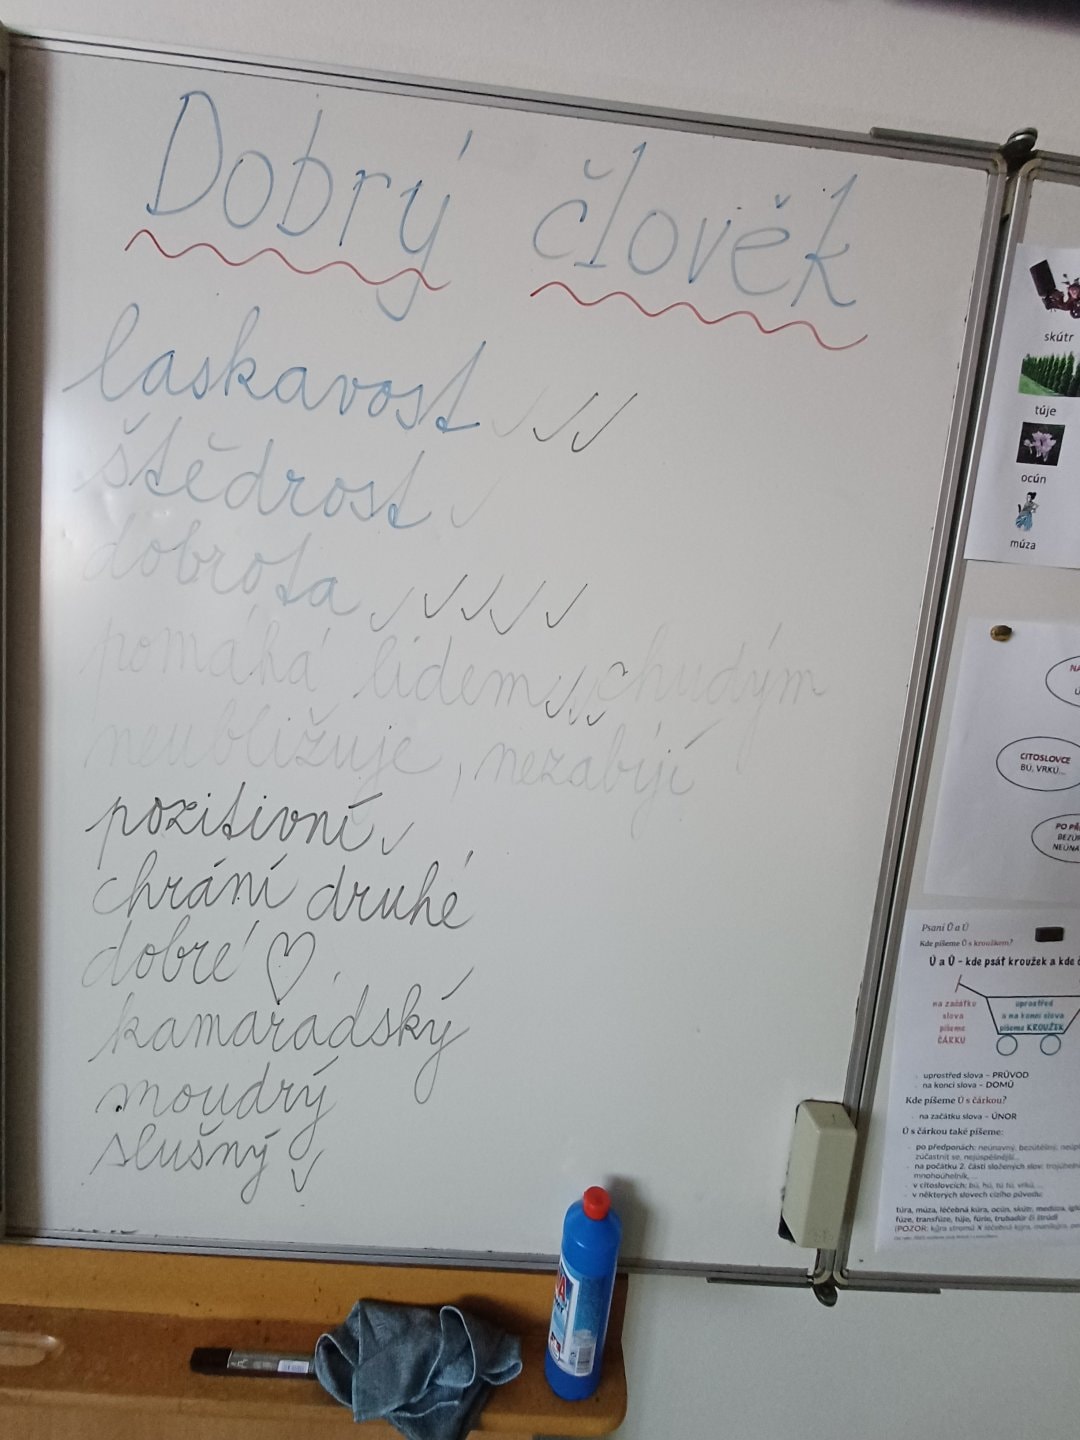 Dobrý člověk
laskavost ✓✓✓
štědrost ✓
dobrota ✓✓✓✓✓
pomáhá lidem ✓✓✓, chudým
neubližuje, nezabíjí
pozitivní ✓
chrání druhé
dobré ♡
kamarádský
moudrý
slušný ✓
skútr
túje
ocún
múza
NA
CITOSLOVCE
BÚ, VRKÚ...
PO PŘ
Psaní Ů a Ú
Kde píšeme Ů s kroužkem?
Ů a Ú - kde psát kroužek a kde č
na začátku
slova
píšeme
ČÁRKU
uprostřed
a na konci slova
píšeme KROUŽEK
uprostřed slova – PRŮVOD
na konci slova – DOMŮ
Kde píšeme Ú s čárkou?
na začátku slova – ÚNOR
Ú s čárkou také píšeme:
po předponách: neúnavný, bezúhelný,
zúčastnit se, nejúspěšnější...
na počátku 2. části složených slov:
mnohoúhelník, ...
v citoslovcích: bú, hú, tú tú, vrkú, ...
v některých slovech cizího původu:
túra, múza, léčebná kúra, ocún, skútr, medúza,
fúze, transfúze, túje, fúrie, trubadúr či štrúdl
(POZOR: kůra stromů X léčebná kúra,